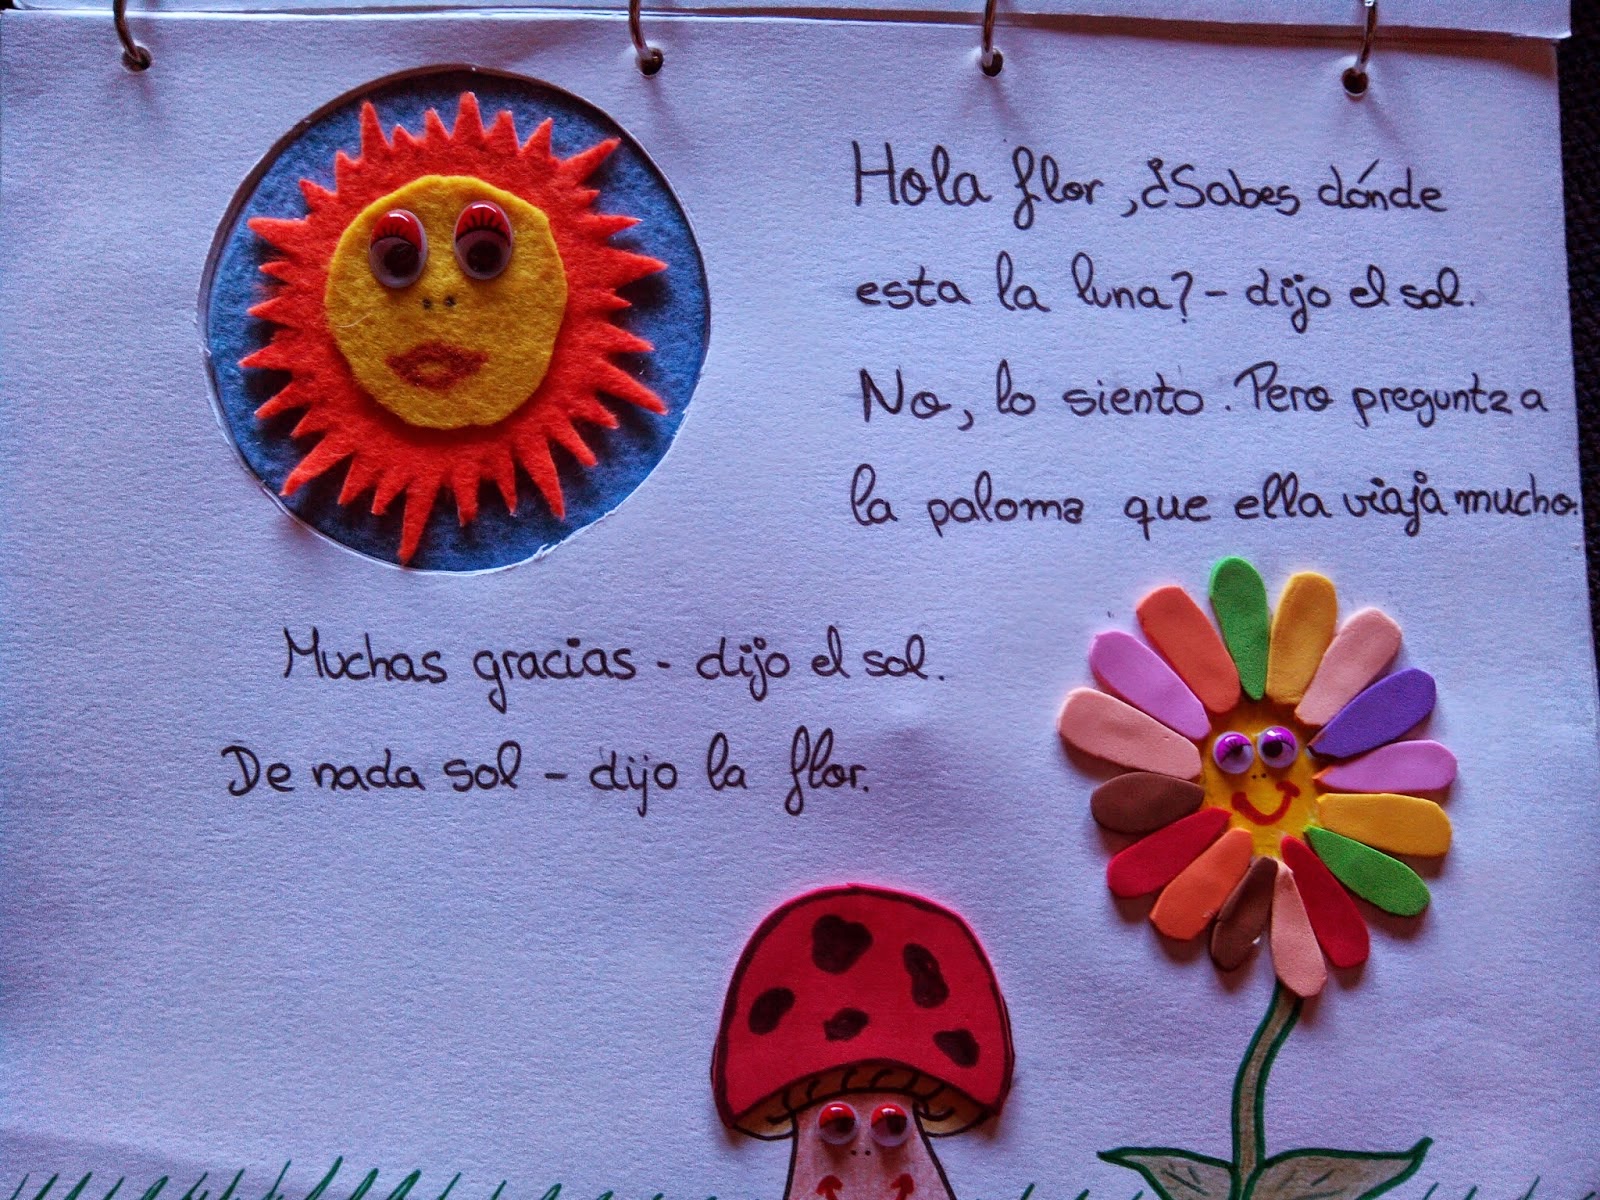 Hola flor, ¿Sabes dónde
esta la luna? - dijo el sol.
No, lo siento. Pero pregunta a
la paloma que ella viaja mucho.
Muchas gracias - dijo el sol.
De nada sol - dijo la flor.